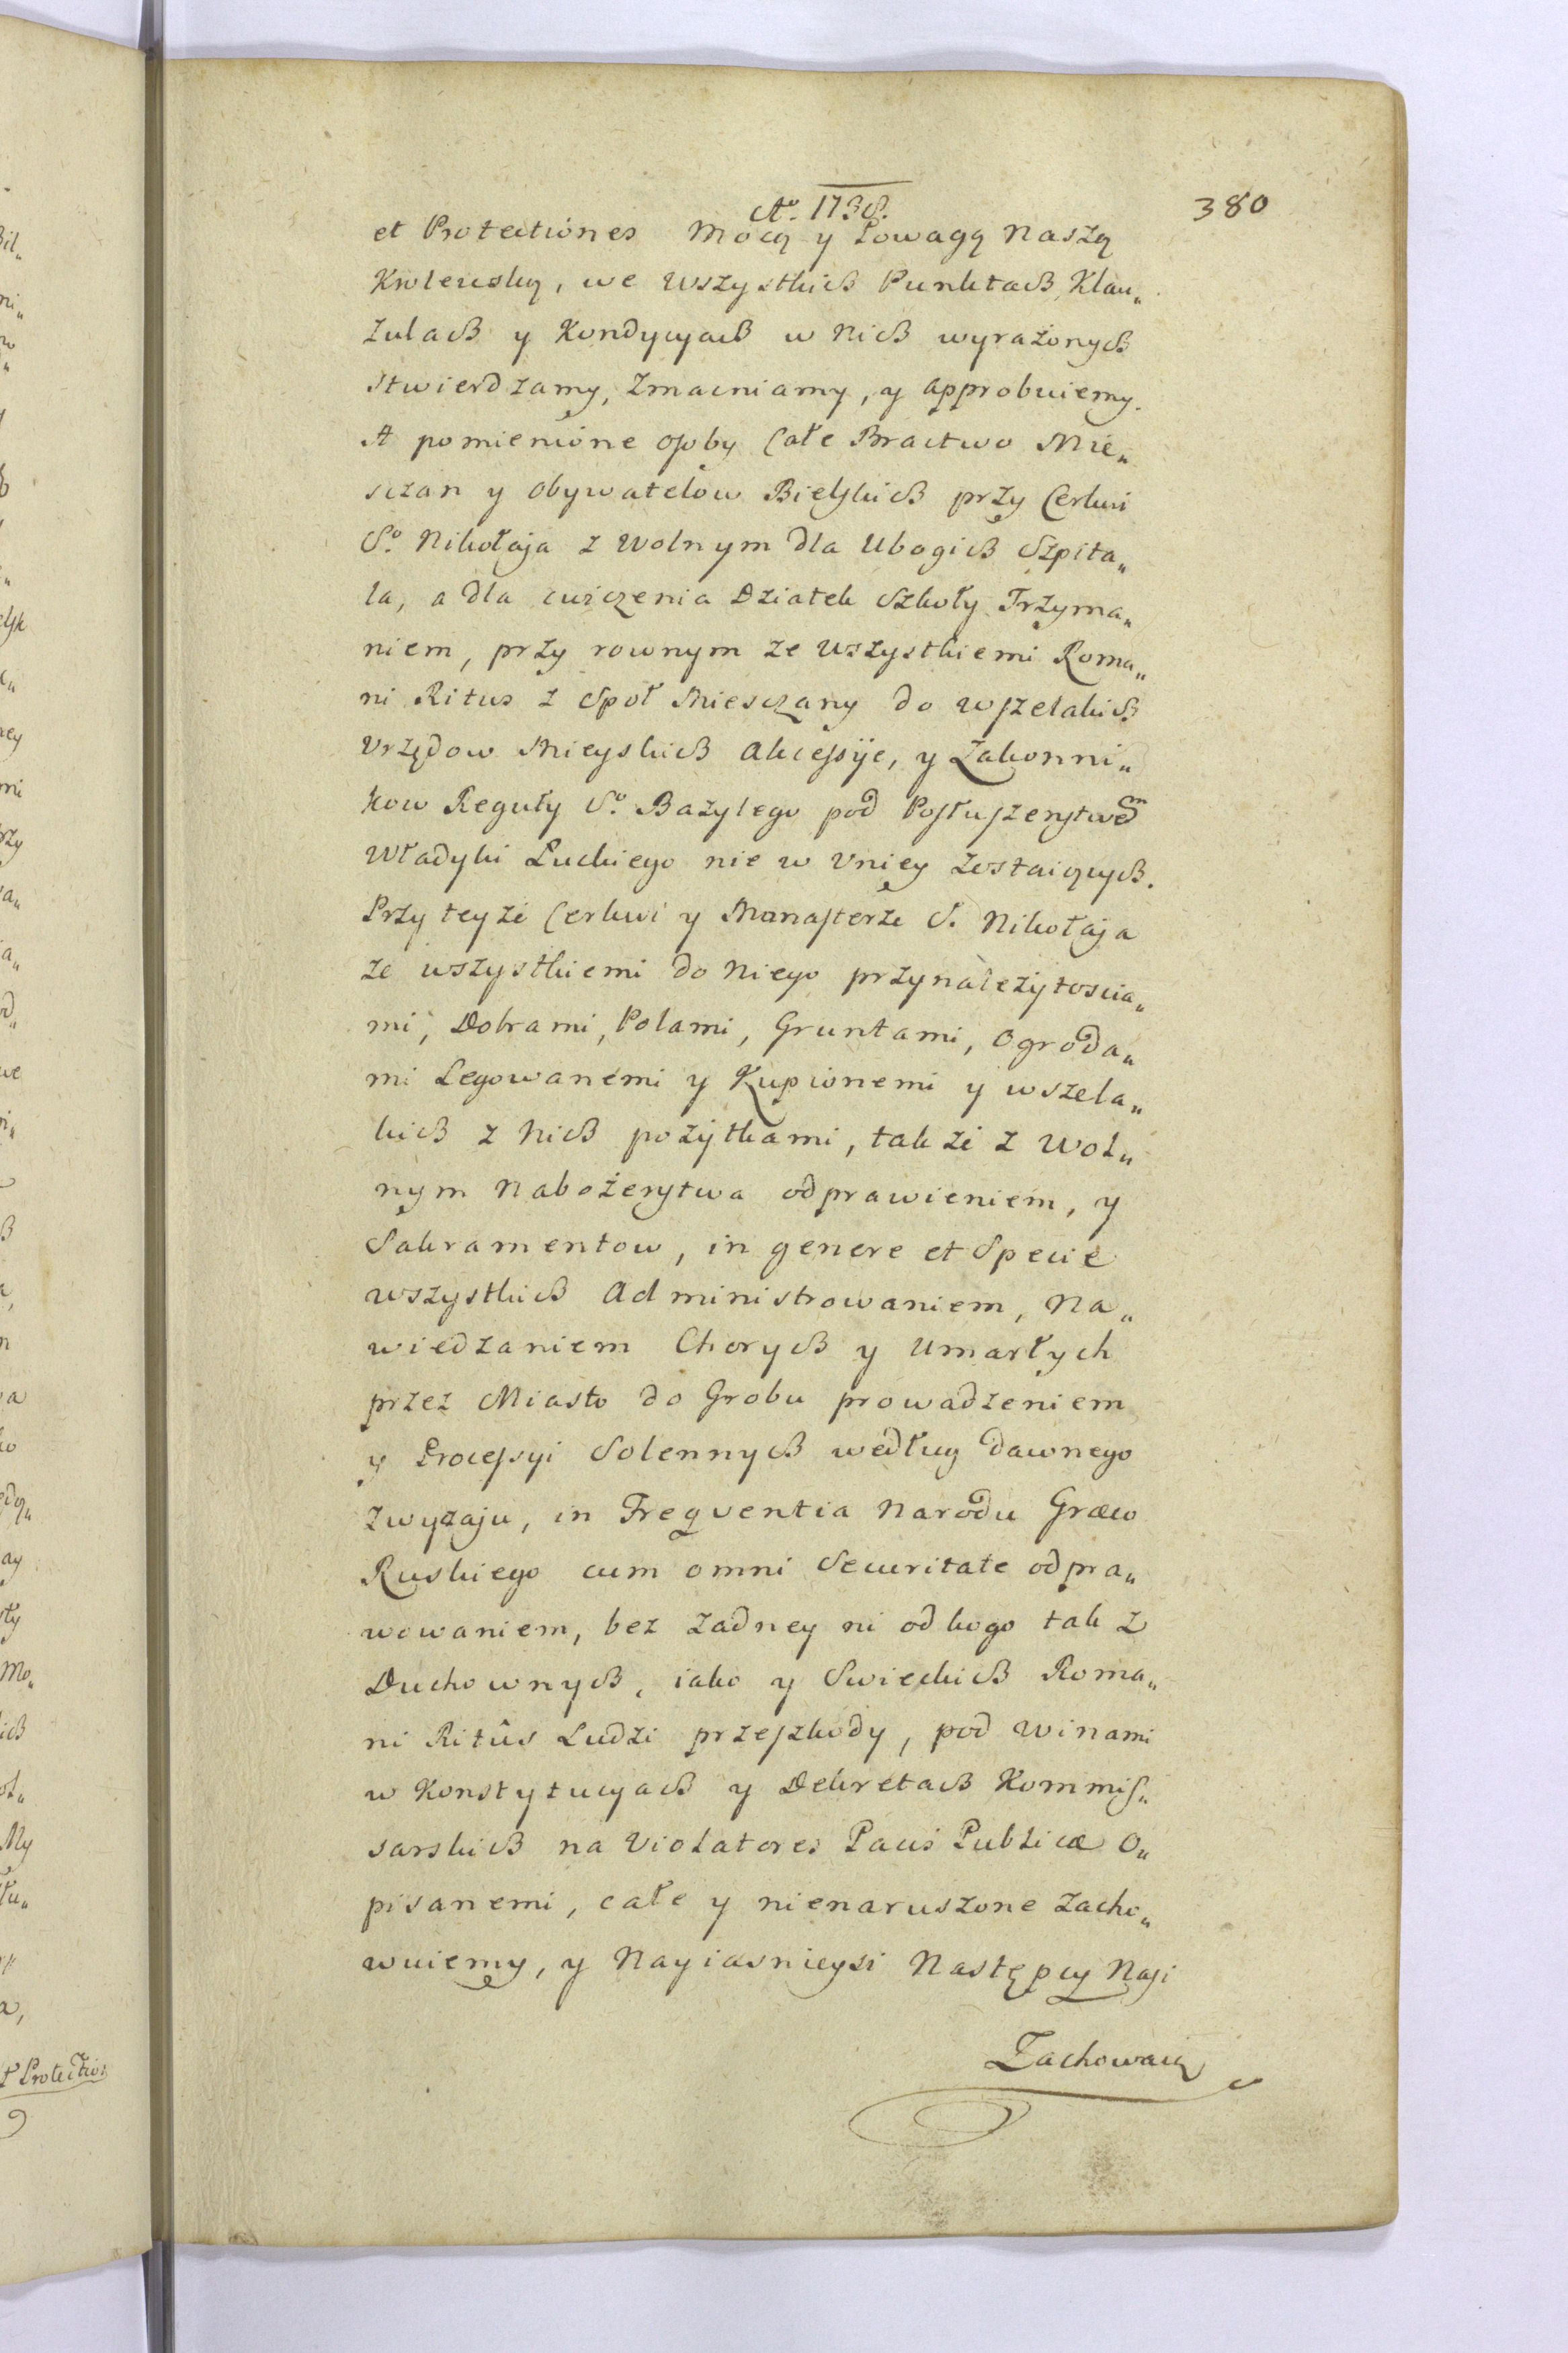 Aº. 1738.
380
et Protectiones Mocą y Powagą Naszą
Krolewską, we wszystkich Punktach, Klau„
zulach y Kondycyach w Nich wyrażonych
stwierdzamy, zmacniamy, y approbuiemy.
A pomienione osoby Całe Bractwo Mie„
sczan y obywatelow Bielskich przy Cerkwi
Sº. Nikołaja z wolnym dla Ubogich Szpita„
la, a dla cwiczenia Dziatek Szkoły Trzyma„
niem, przy rownym ze wszystkiemi Roma„
ni Ritus z Społ Miesczany do wszelakich
Vrzędow Mieyskich Akcessÿe, y Zakonni„
kow Reguły Sº. Bazylego pod Posłuszenstwem
Władyki Łuckiego nie w Vniey zostaiących.
Przy teyże Cerkwi y Manasterze S. Nikołaja
ze wszystkiemi do Niego przynależytoscia„
mi, Dobrami, Polami, Gruntami, Ogroda„
mi Legowanemi y Kupionemi y wszela„
kich z Nich pożytkami, także z Wol„
nym Nabożenstwa odprawieniem, y
Sakramentow, in genere et Specie
wszystkich Administrowaniem, Na„
wiedzaniem Chorych y Umarłych
przez Miasto do Grobu prowadzeniem
y Processyi Solennych według dawnego
zwyczaju, in Freqventia Narodu Græco
Ruskiego cum omni Securitate odpra„
wowaniem, bez żadney ni od kogo tak z
Duchownych, iako y Swieckich Roma„
ni Ritûs Ludzi przeszkody, pod winami
w Konstytucyach y Dekretach Kommis„
sarskich na Violatores Pacis Publicæ O„
pisanemi, całe y nienaruszone zacho„
wuiemy, y Nayiasnieysi Następcy Nasi
Zachowaią